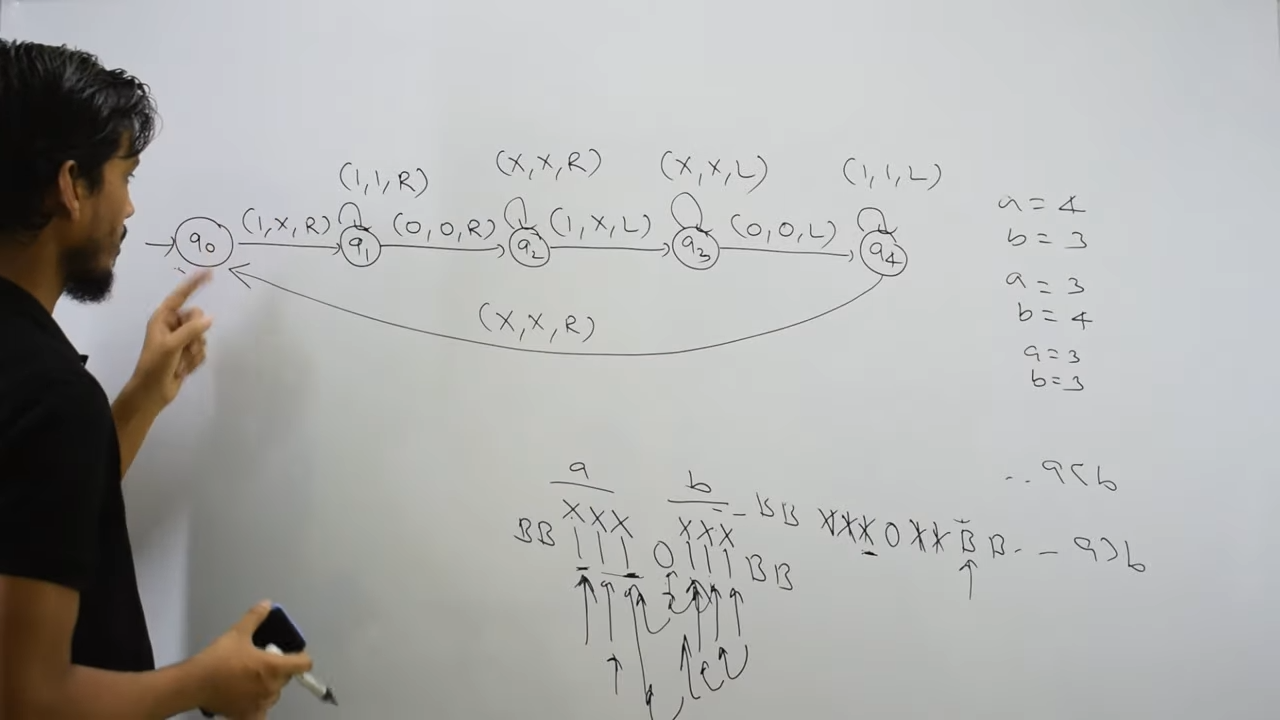 (1,1,R) (X,X,R) (X,X,L) (1,1,L)
q0 (1,X,R) q1 (0,0,R) q2 (1,X,L) q3 (0,0,L) q4
(X,X,R)
a = 4
b = 3
a = 3
b = 4
a=3
b=3
a b
.. a<b
X X X X X X - BB
BB 1 1 1 0 1 1 1 BB
XXX 0 XX B B. - a>b